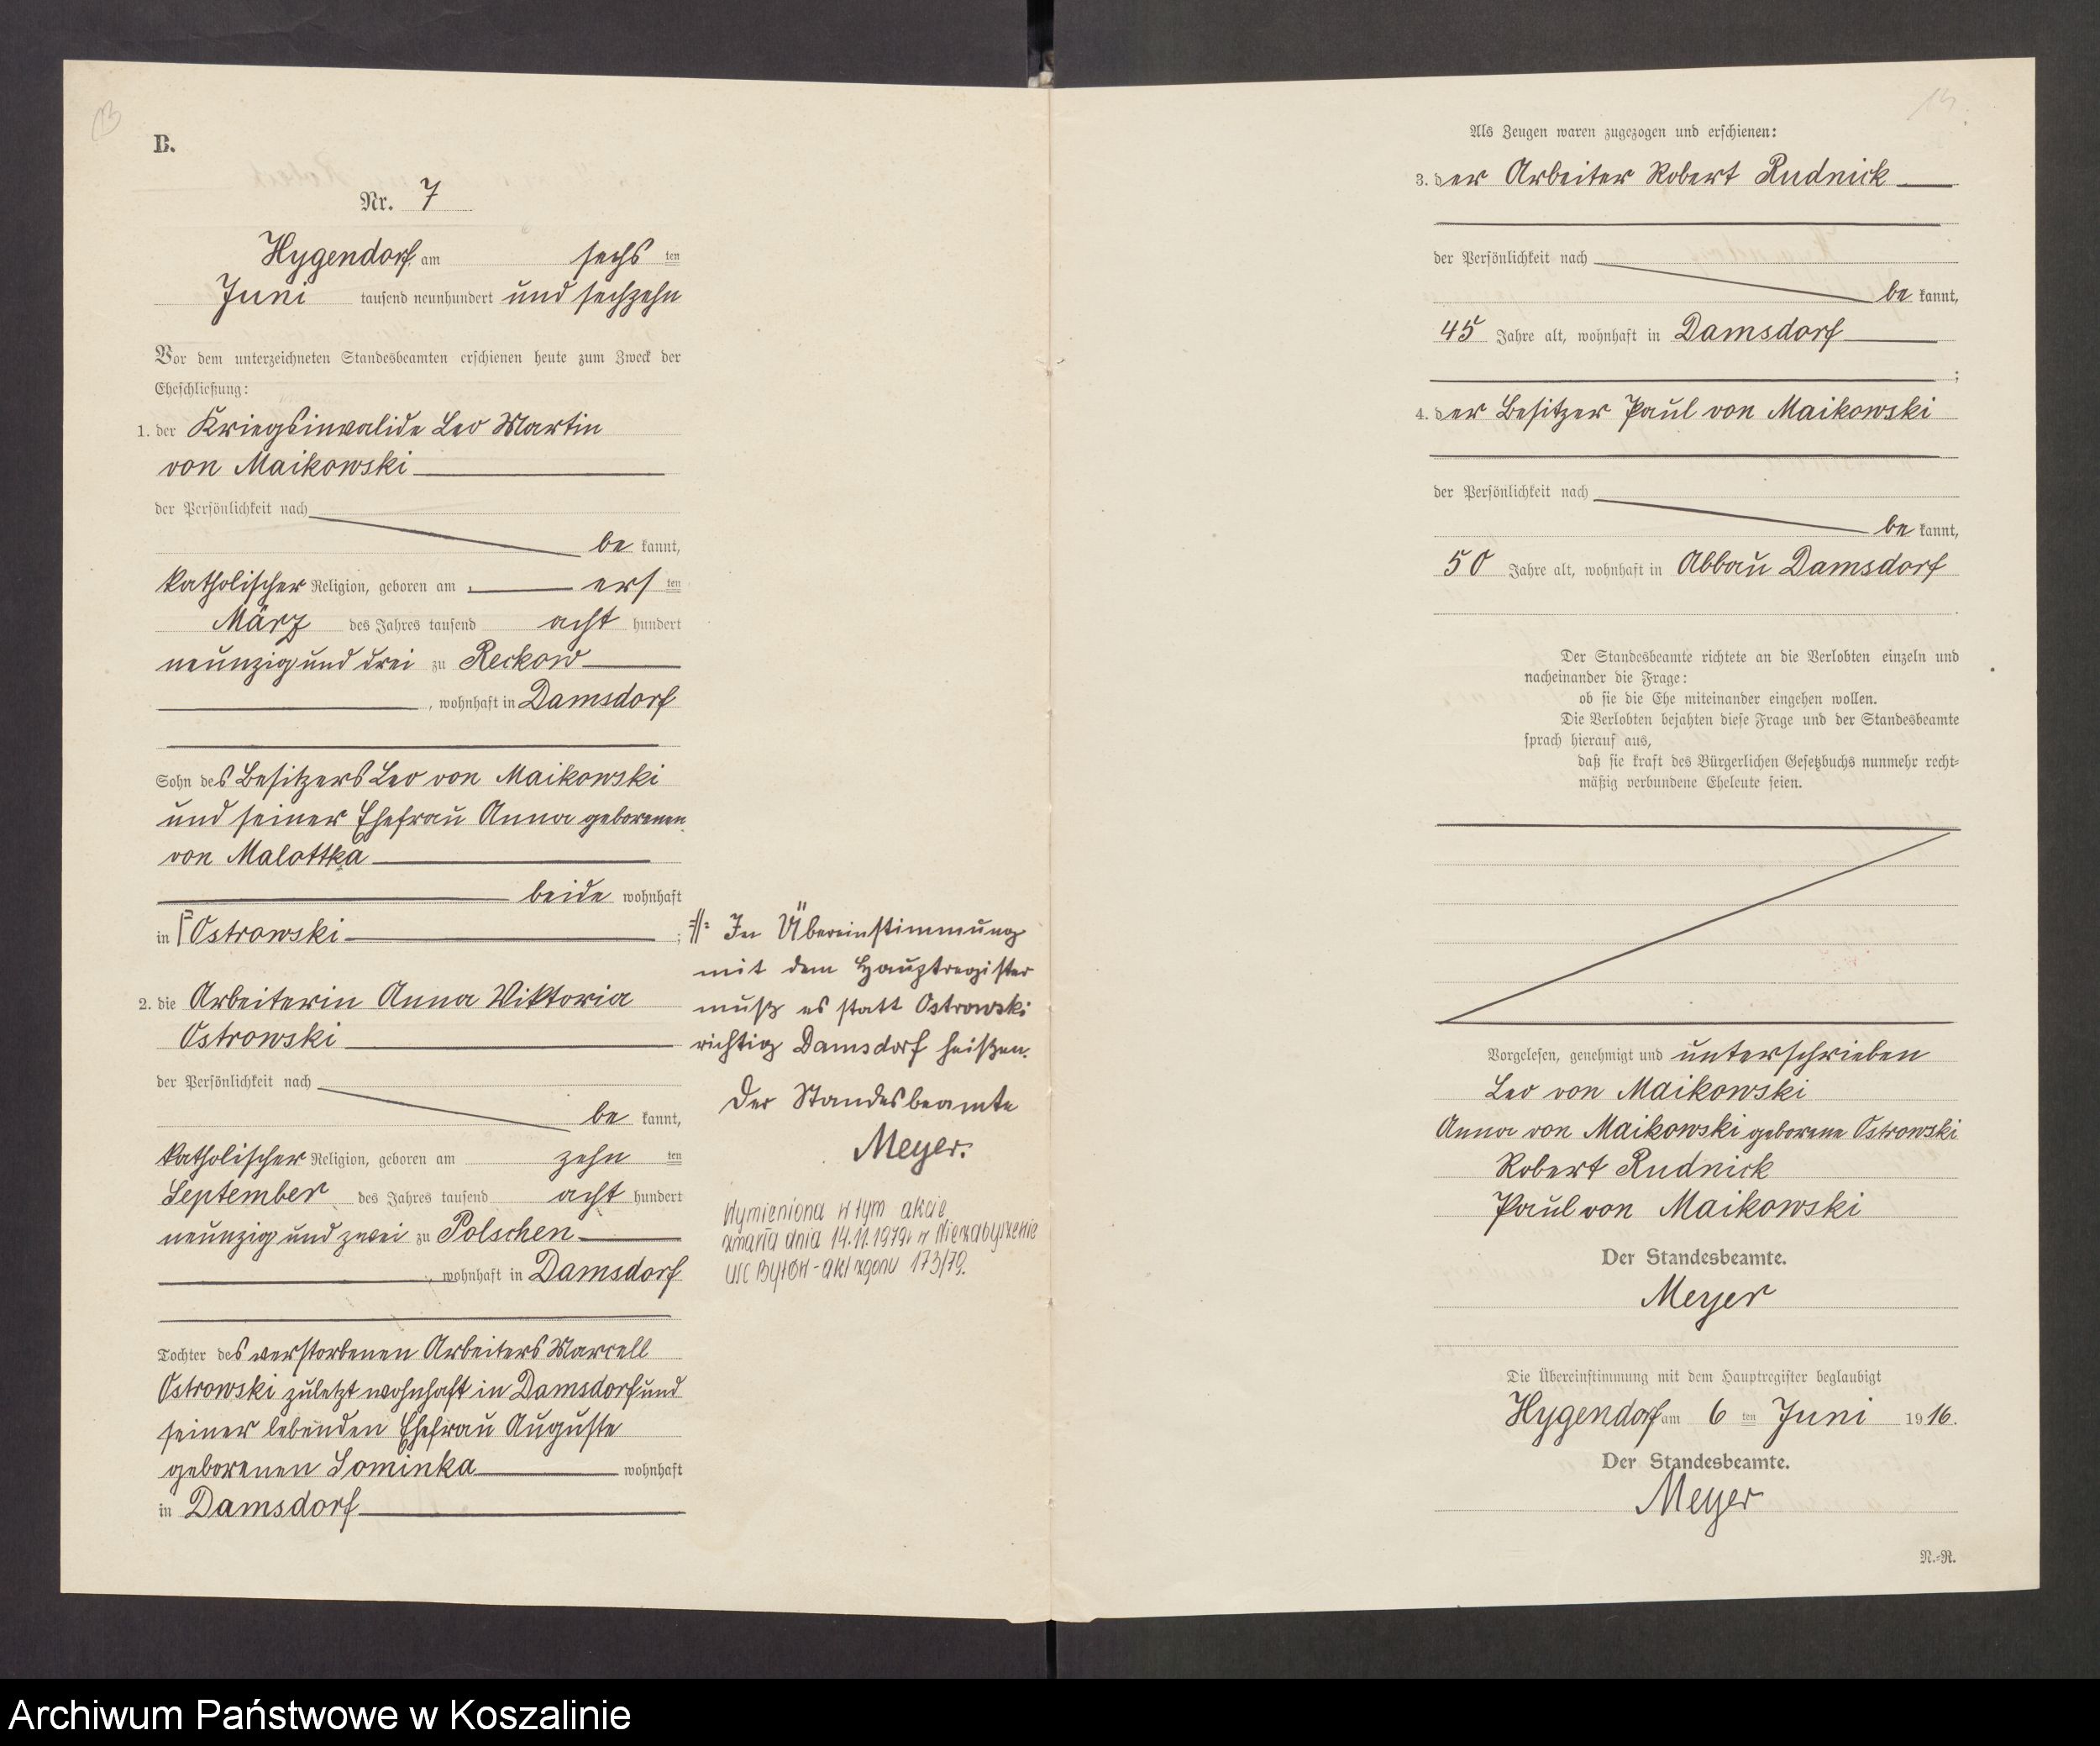 B.
Nr. 7
Hygendorf am sechs ten
Juni tausend neunhundert und sechzehn
Vor dem unterzeichneten Standesbeamten erschienen heute zum Zweck der
Eheschließung:
1. der Kriegsinvalide Leo Martin
von Maikowski
der Persönlichkeit nach
be kannt,
katholischer Religion, geboren am ers ten
März des Jahres tausend acht hundert
neunzig und drei zu Reckow
, wohnhaft in Damsdorf
Sohn des Besitzers Leo von Maikowski
und seiner Ehefrau Anna geborenen
von Malottka
beide wohnhaft
in Ostrowski ;
2. die Arbeiterin Anna Viktoria
Ostrowski
der Persönlichkeit nach
be kannt,
katholischer Religion, geboren am zehn ten
September des Jahres tausend acht hundert
neunzig und zwei zu Polschen
, wohnhaft in Damsdorf
Tochter des verstorbenen Arbeiters Marcell
Ostrowski zuletzt wohnhaft in Damsdorf und
seiner lebenden Ehefrau Auguste
geborenen Lominka wohnhaft
in Damsdorf
In Übereinstimmung
mit dem Hauptregister
muß es statt Ostrowski
richtig Damsdorf heißen.
Der Standesbeamte
Meyer.
Wymieniona w tym akcie
zmarła dnia 14.11.1979r w Niezabyszewie
USC Bytów - akt zgonu 173/79.
Als Zeugen waren zugezogen und erschienen:
3. der Arbeiter Robert Rudnick
der Persönlichkeit nach
be kannt,
45 Jahre alt, wohnhaft in Damsdorf
;
4. der Besitzer Paul von Maikowski
der Persönlichkeit nach
be kannt,
50 Jahre alt, wohnhaft in Abbau Damsdorf
.
Der Standesbeamte richtete an die Verlobten einzeln und
nacheinander die Frage:
ob sie die Ehe miteinander eingehen wollen.
Die Verlobten bejahten diese Frage und der Standesbeamte
sprach hierauf aus,
daß sie kraft des Bürgerlichen Gesetzbuchs nunmehr recht-
mäßig verbundene Eheleute seien.
Vorgelesen, genehmigt und unterschrieben
Leo von Maikowski
Anna von Maikowski geborene Ostrowski
Robert Rudnick
Paul von Maikowski
Der Standesbeamte.
Meyer
Die Übereinstimmung mit dem Hauptregister beglaubigt
Hygendorf am 6 ten Juni 19 16.
Der Standesbeamte.
Meyer
N.-R.
Archiwum Państwowe w Koszalinie